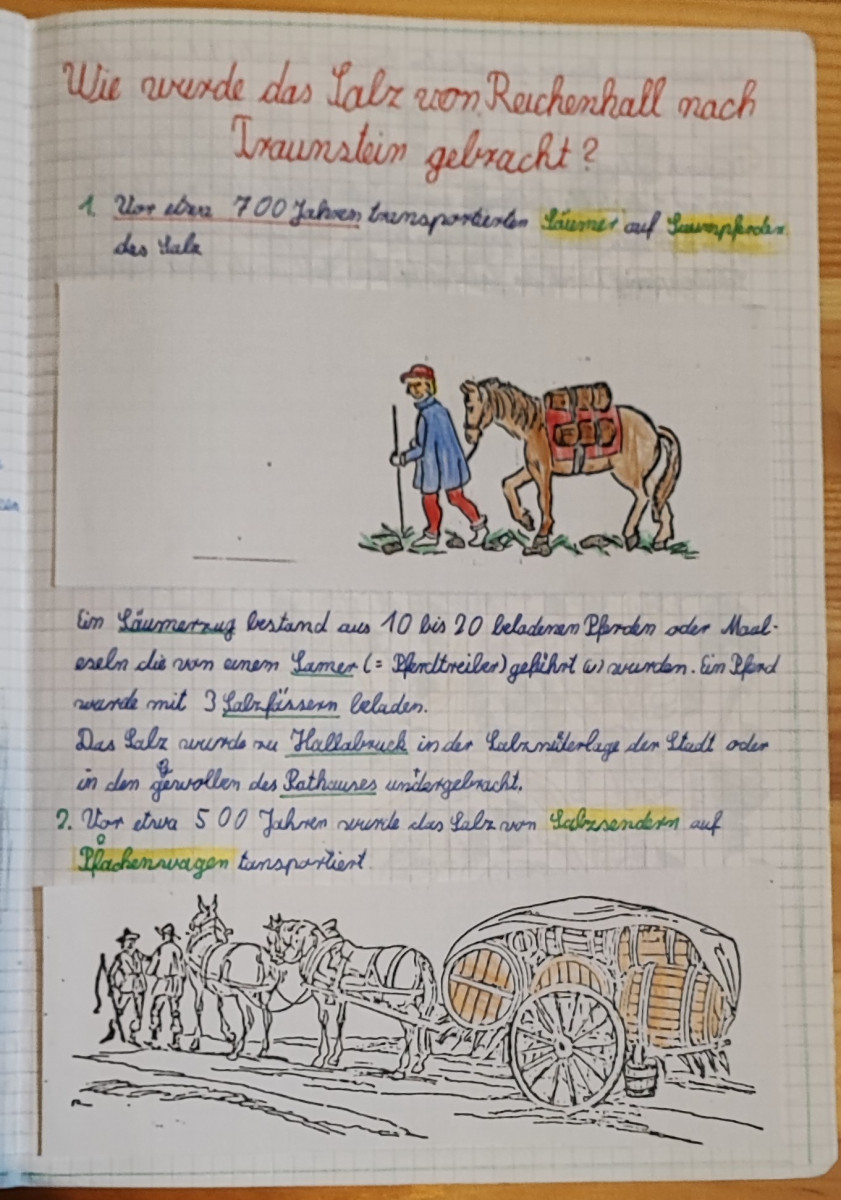 Wie wurde das Salz von Reichenhall nach
Traunstein gebracht?
1. Vor etwa 700 Jahren transportierten Säumer auf Saumpferden
das Salz
Ein Säumerzug bestand aus 10 bis 20 beladenen Pferden oder Maul-
eseln die von einem Samer (= Pferdtreiber) geführt wurden. Ein Pferd
wurde mit 3 Salzfässern beladen.
Das Salz wurde zu Hallabruck in der Salzniederlage der Stadt oder
in den des Rathauses untergebracht.
2. Vor etwa 500 Jahren wurde das Salz von Salzsendern auf
Plachenwagen tansportiert